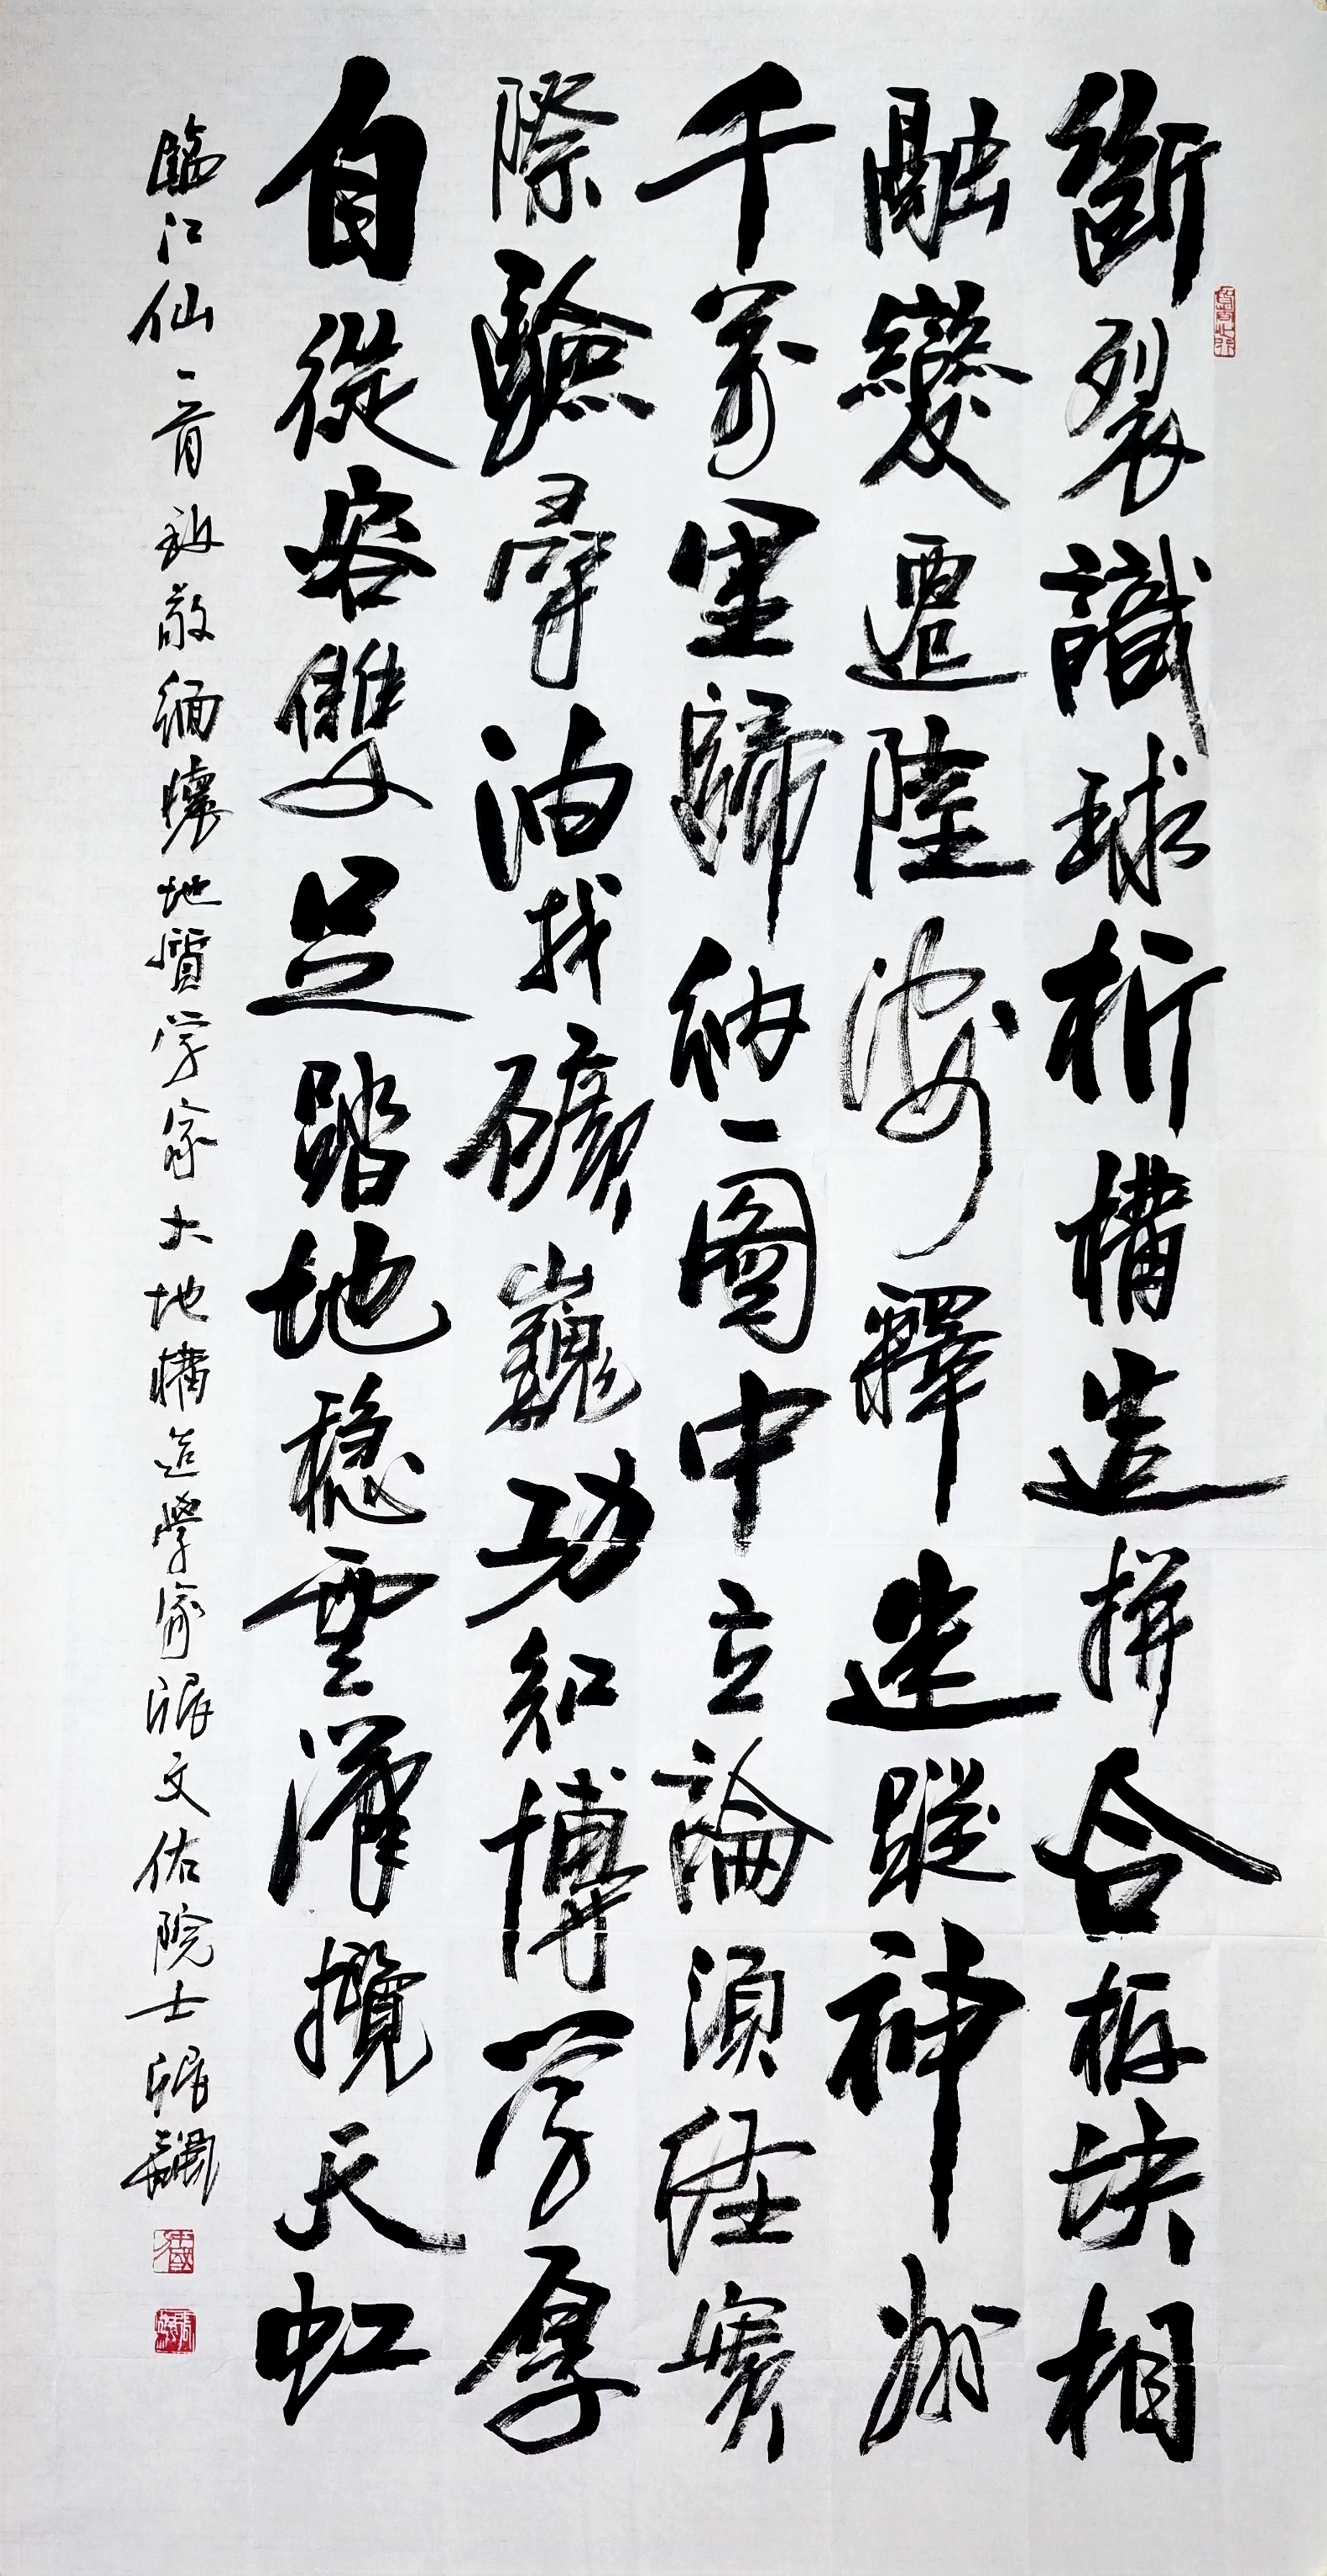 斷裂識球析構造拼合板塊相
融變遷陸海釋迷蹤神州
千萬里歸納一圖中立論須經實
際驗尋油找礦巍功知博學厚
自從容雙足踏地穩雲漢攬天虹
臨江仙一首致敬緬懷地質学家大地構造學家張文佑院士張